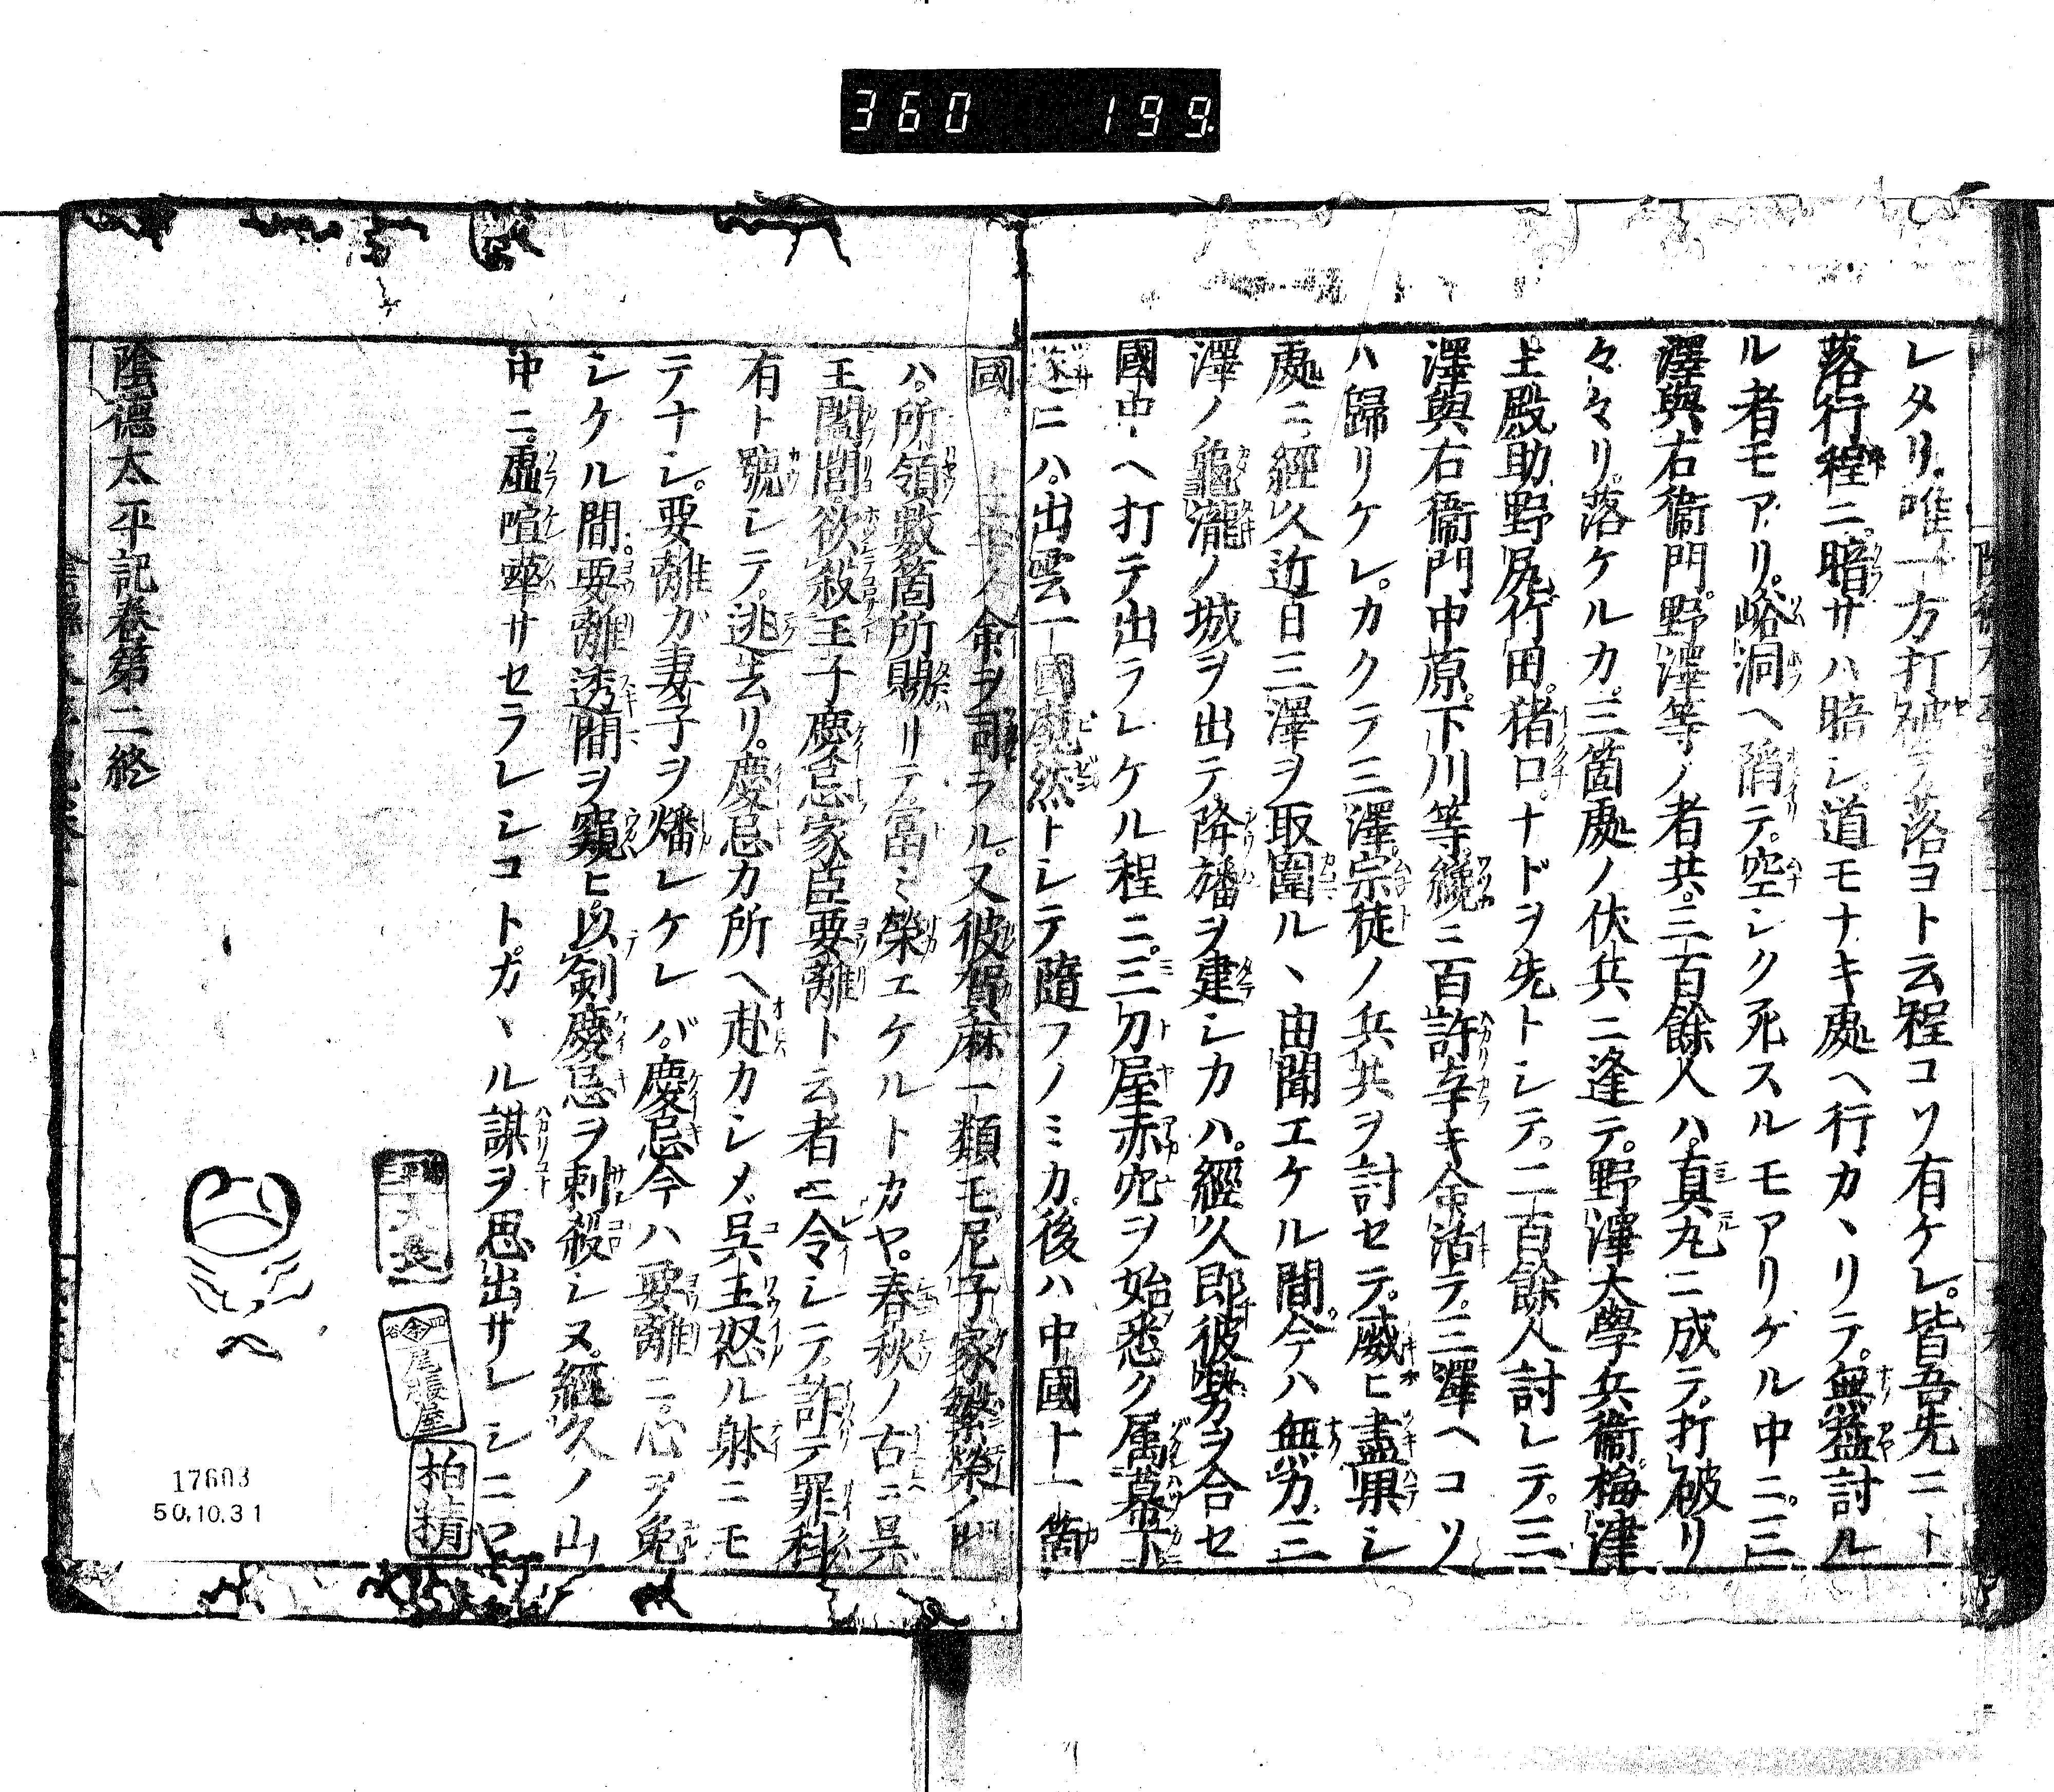 360 199.
レタリ唯一方打破テ落ヨト云程コソ有ケレ皆吾先ニト
落行程ニ暗サハ暗シ道モナキ處ヘ行カヽリテ無益討ル
ル者モアリ谿洞ヘ陷テ空シク死スルモアリケル中ニ三
澤與右衞門野澤等ノ者共三百餘人ハ真丸ニ成テ打破リ
々々リ落ケルカ三箇處ノ伏兵ニ逢テ野澤大學兵衞梅津
主殿助野尻竹田猪口ナドヲ先トシテ二百餘人討レテ三
澤與右衞門中原下川等纔ニ百許辛キ命活テ三澤ヘコソ
ハ歸リケレカクテ三澤宗徒ノ兵共ヲ討セテ威ヒ盡果シ
處ニ經久近日三澤ヲ取圍ルヽ由聞エケル間今ハ無力三
澤ノ龜瀧ノ城ヲ出テ降旛ヲ建シカハ經久郎彼勢ヲ合セ
國中ヘ打テ出ラレケル程ニ三刀屋赤穴ヲ始悉ク属幕下
遂ニハ出雲一國靡然トシテ隨フノミカ後ハ中國十一箇
國ノ命ヲ司ラル又彼賀麻一類モ尼子家繁榮ノ
ハ所領數箇所賜リテ冨ミ榮エケルトカヤ春秋ノ古ニ呉
王闔閭欲殺王子慶忌家臣要離ト云者ニ令シテ詐テ罪科
有ト號シテ逃去リ慶忌カ所ヘ赴カシメ呉王怒ル躰ニモ
テナシ要離ガ妻子ヲ燔レケレバ慶忌今ハ要離ニ心ヲ免
シケル間要離透間ヲ窺ヒ以剣慶忌ヲ刺殺シヌ經久ノ山
中ニ虚喧嘩サセラレシコトカヽル謀ヲ思出サレシニヤ
陰德太平記卷第二終
尾張屋
17603
50.10.31